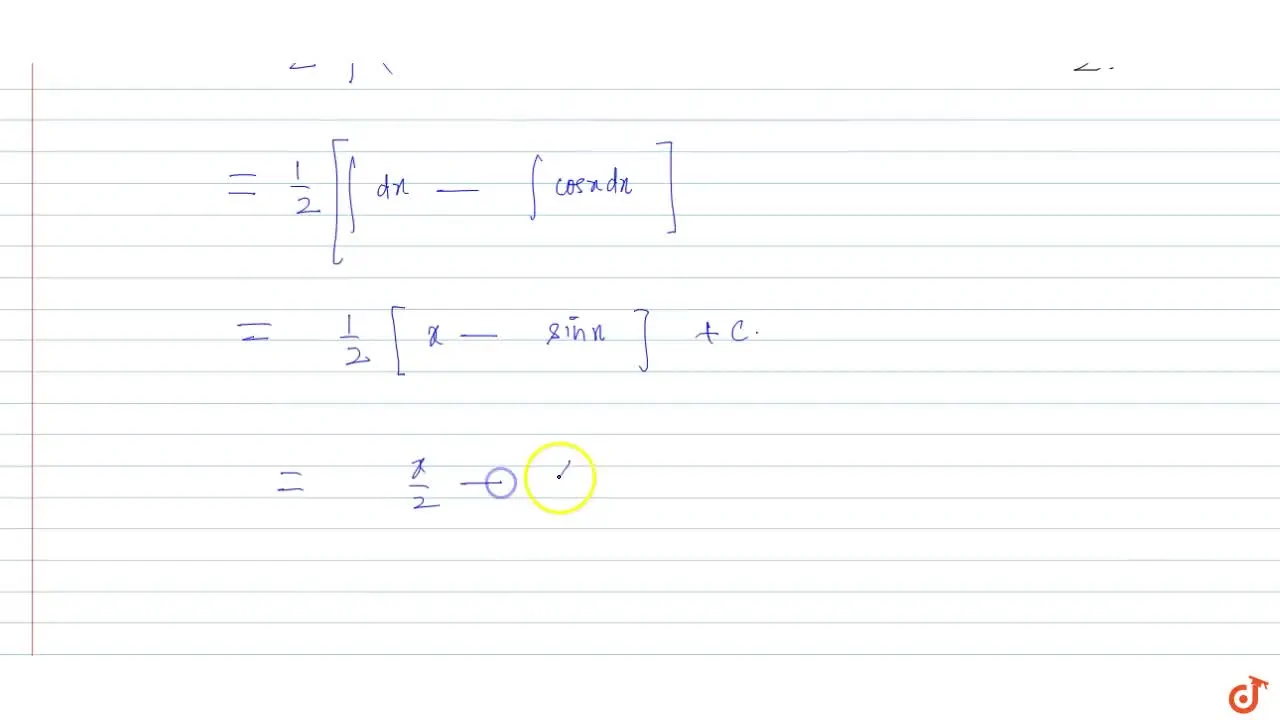 = 1/2 [∫ dx — ∫ cosx dx]
= 1/2 [x — sinx] + c.
= x/2 —